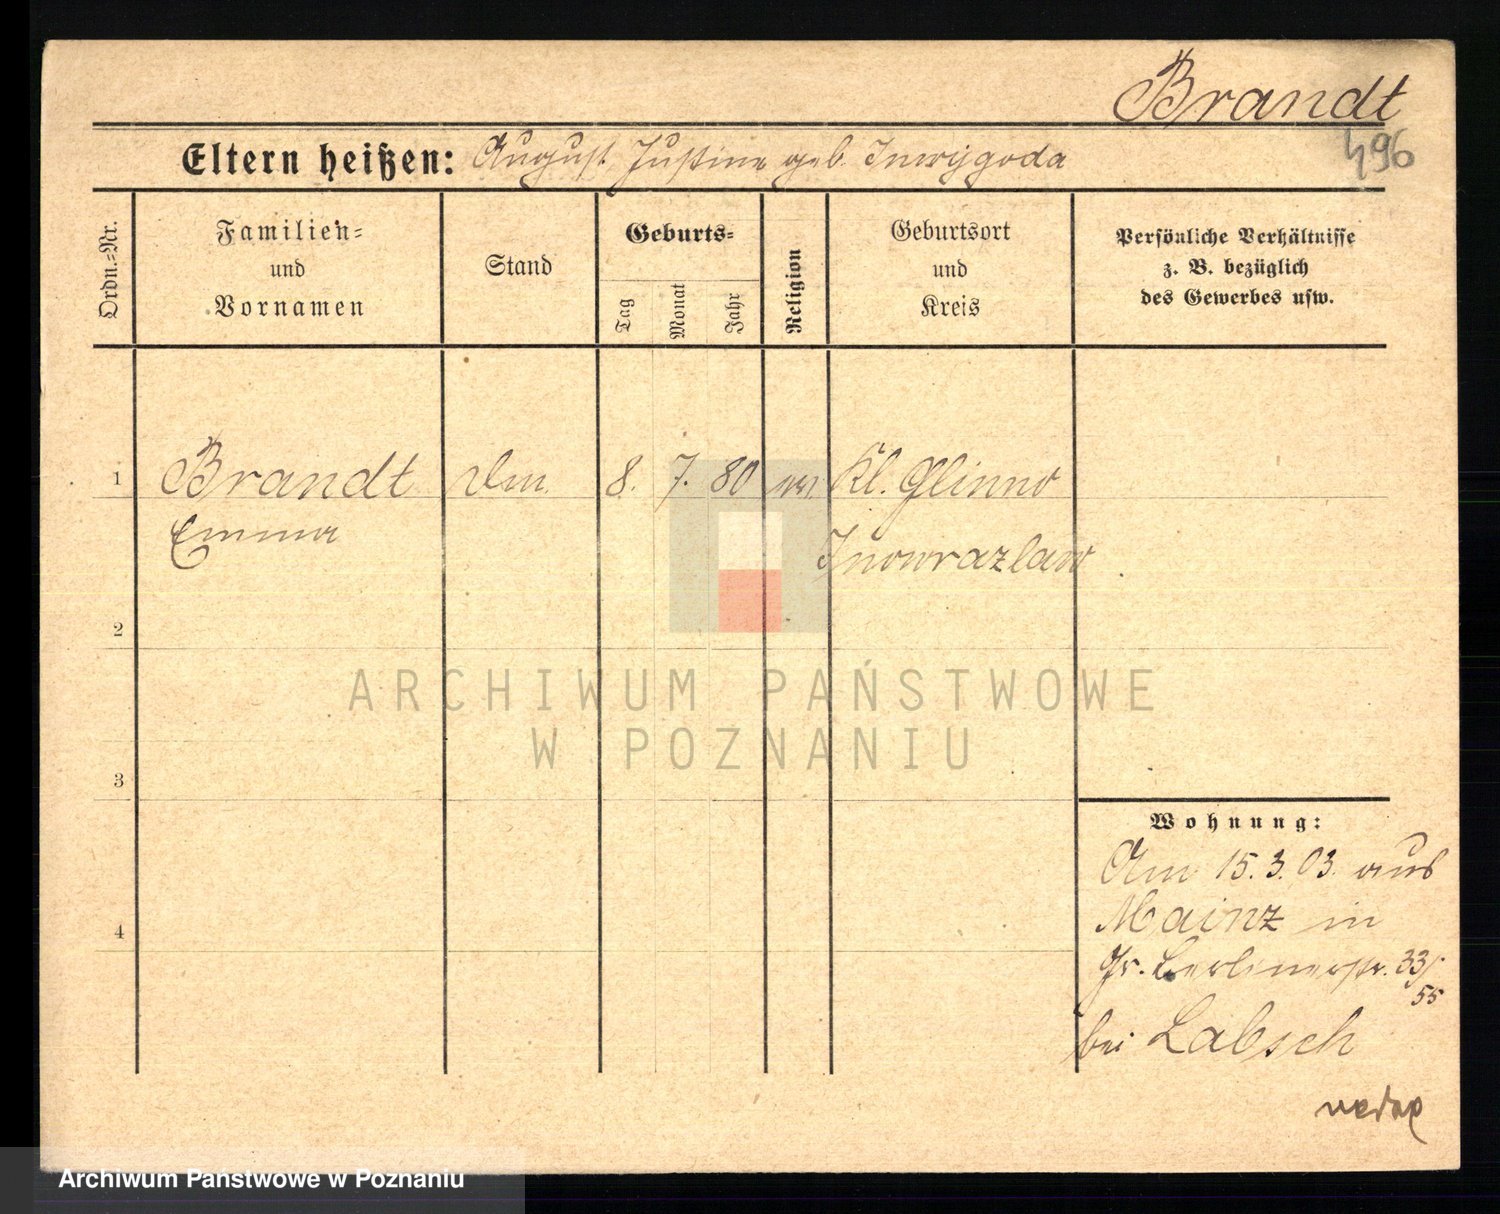 Brandt
496
Eltern heißen: August Justine geb.
Ordn.-Nr.
Familien-
und
Vornamen
Stand
Geburts-
Tag
Monat
Jahr
Religion
Geburtsort
und
Kreis
Persönliche Verhältnisse
z. B. bezüglich
des Gewerbes usw.
1 Brandt 8. 7. 80 Kl. Glinno
Emma Inowrazlaw
2
ARCHIWUM PAŃSTWOWE
W POZNANIU
3
Wohnung:
Am 15.3.03. aus
4 Mainz in
Gr. Berlinerstr. 33/
55
bei Labsch
Archiwum Państwowe w Poznaniu